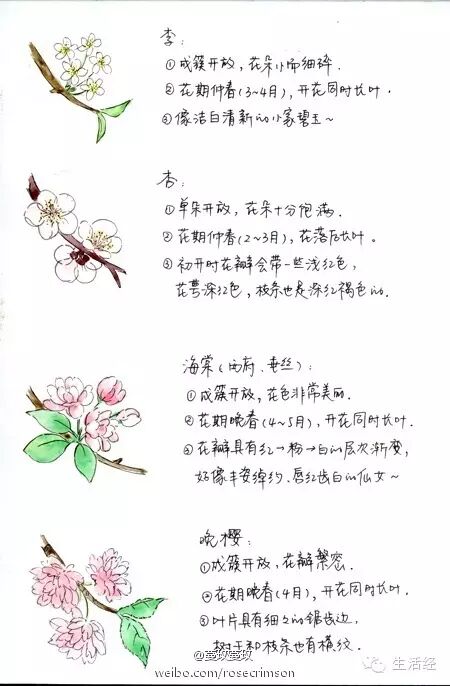 李:
①成簇开放,花朵小而细碎.
②花期仲春(3~4月),开花同时长叶.
③像洁白清新的小家碧玉~
杏:
①单朵开放,花朵十分饱满.
②花期仲春(2~3月),花落后长叶。
③初开时花瓣会带一些浅红色,
花萼深红色,枝条也是深红褐色的.
海棠(西府、垂丝):
①成簇开放,花色非常美丽.
②花期晚春(4~5月),开花同时长叶.
③花瓣具有红→粉→白的层次渐变,
好像丰姿绰约、唇红齿白的仙女~
晚樱:
①成簇开放,花瓣繁密.
②花期晚春(4月),开花同时长叶.
③叶片具有细细的锯齿边,
树干和枝条也有横纹.
weibo.com/rosecrimson
生活经